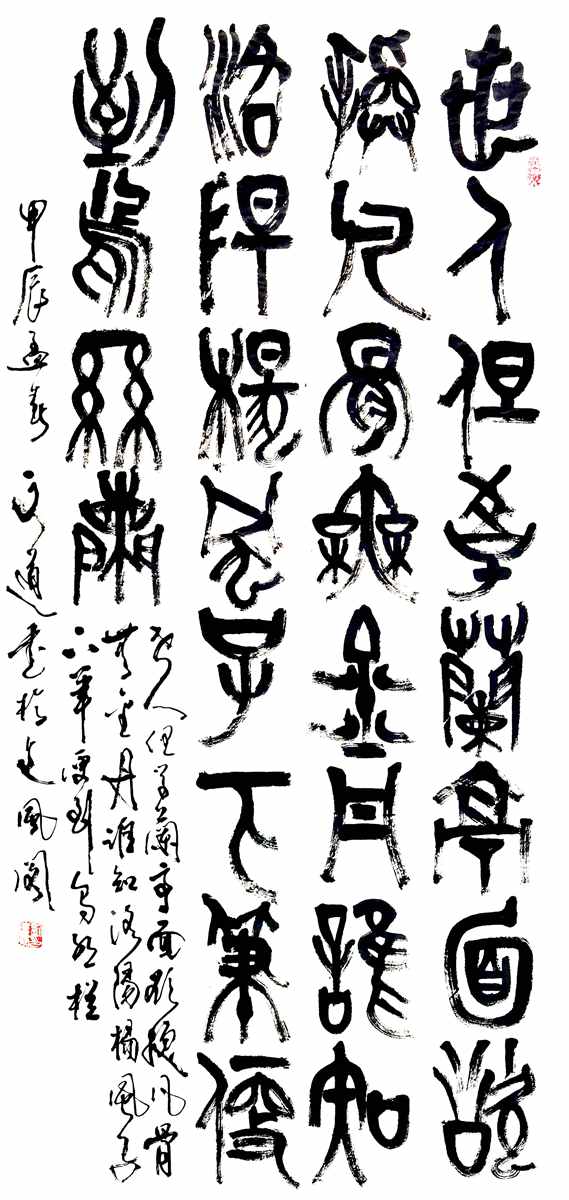 世人但學蘭亭面欲
換凡骨無金丹誰知
洛陽楊風子下筆便
到烏絲闌
世人但学蘭亭面欲換凡骨
無金丹誰知洛陽楊風子
下筆便到烏絲欄
甲辰孟春 文通書於風閣